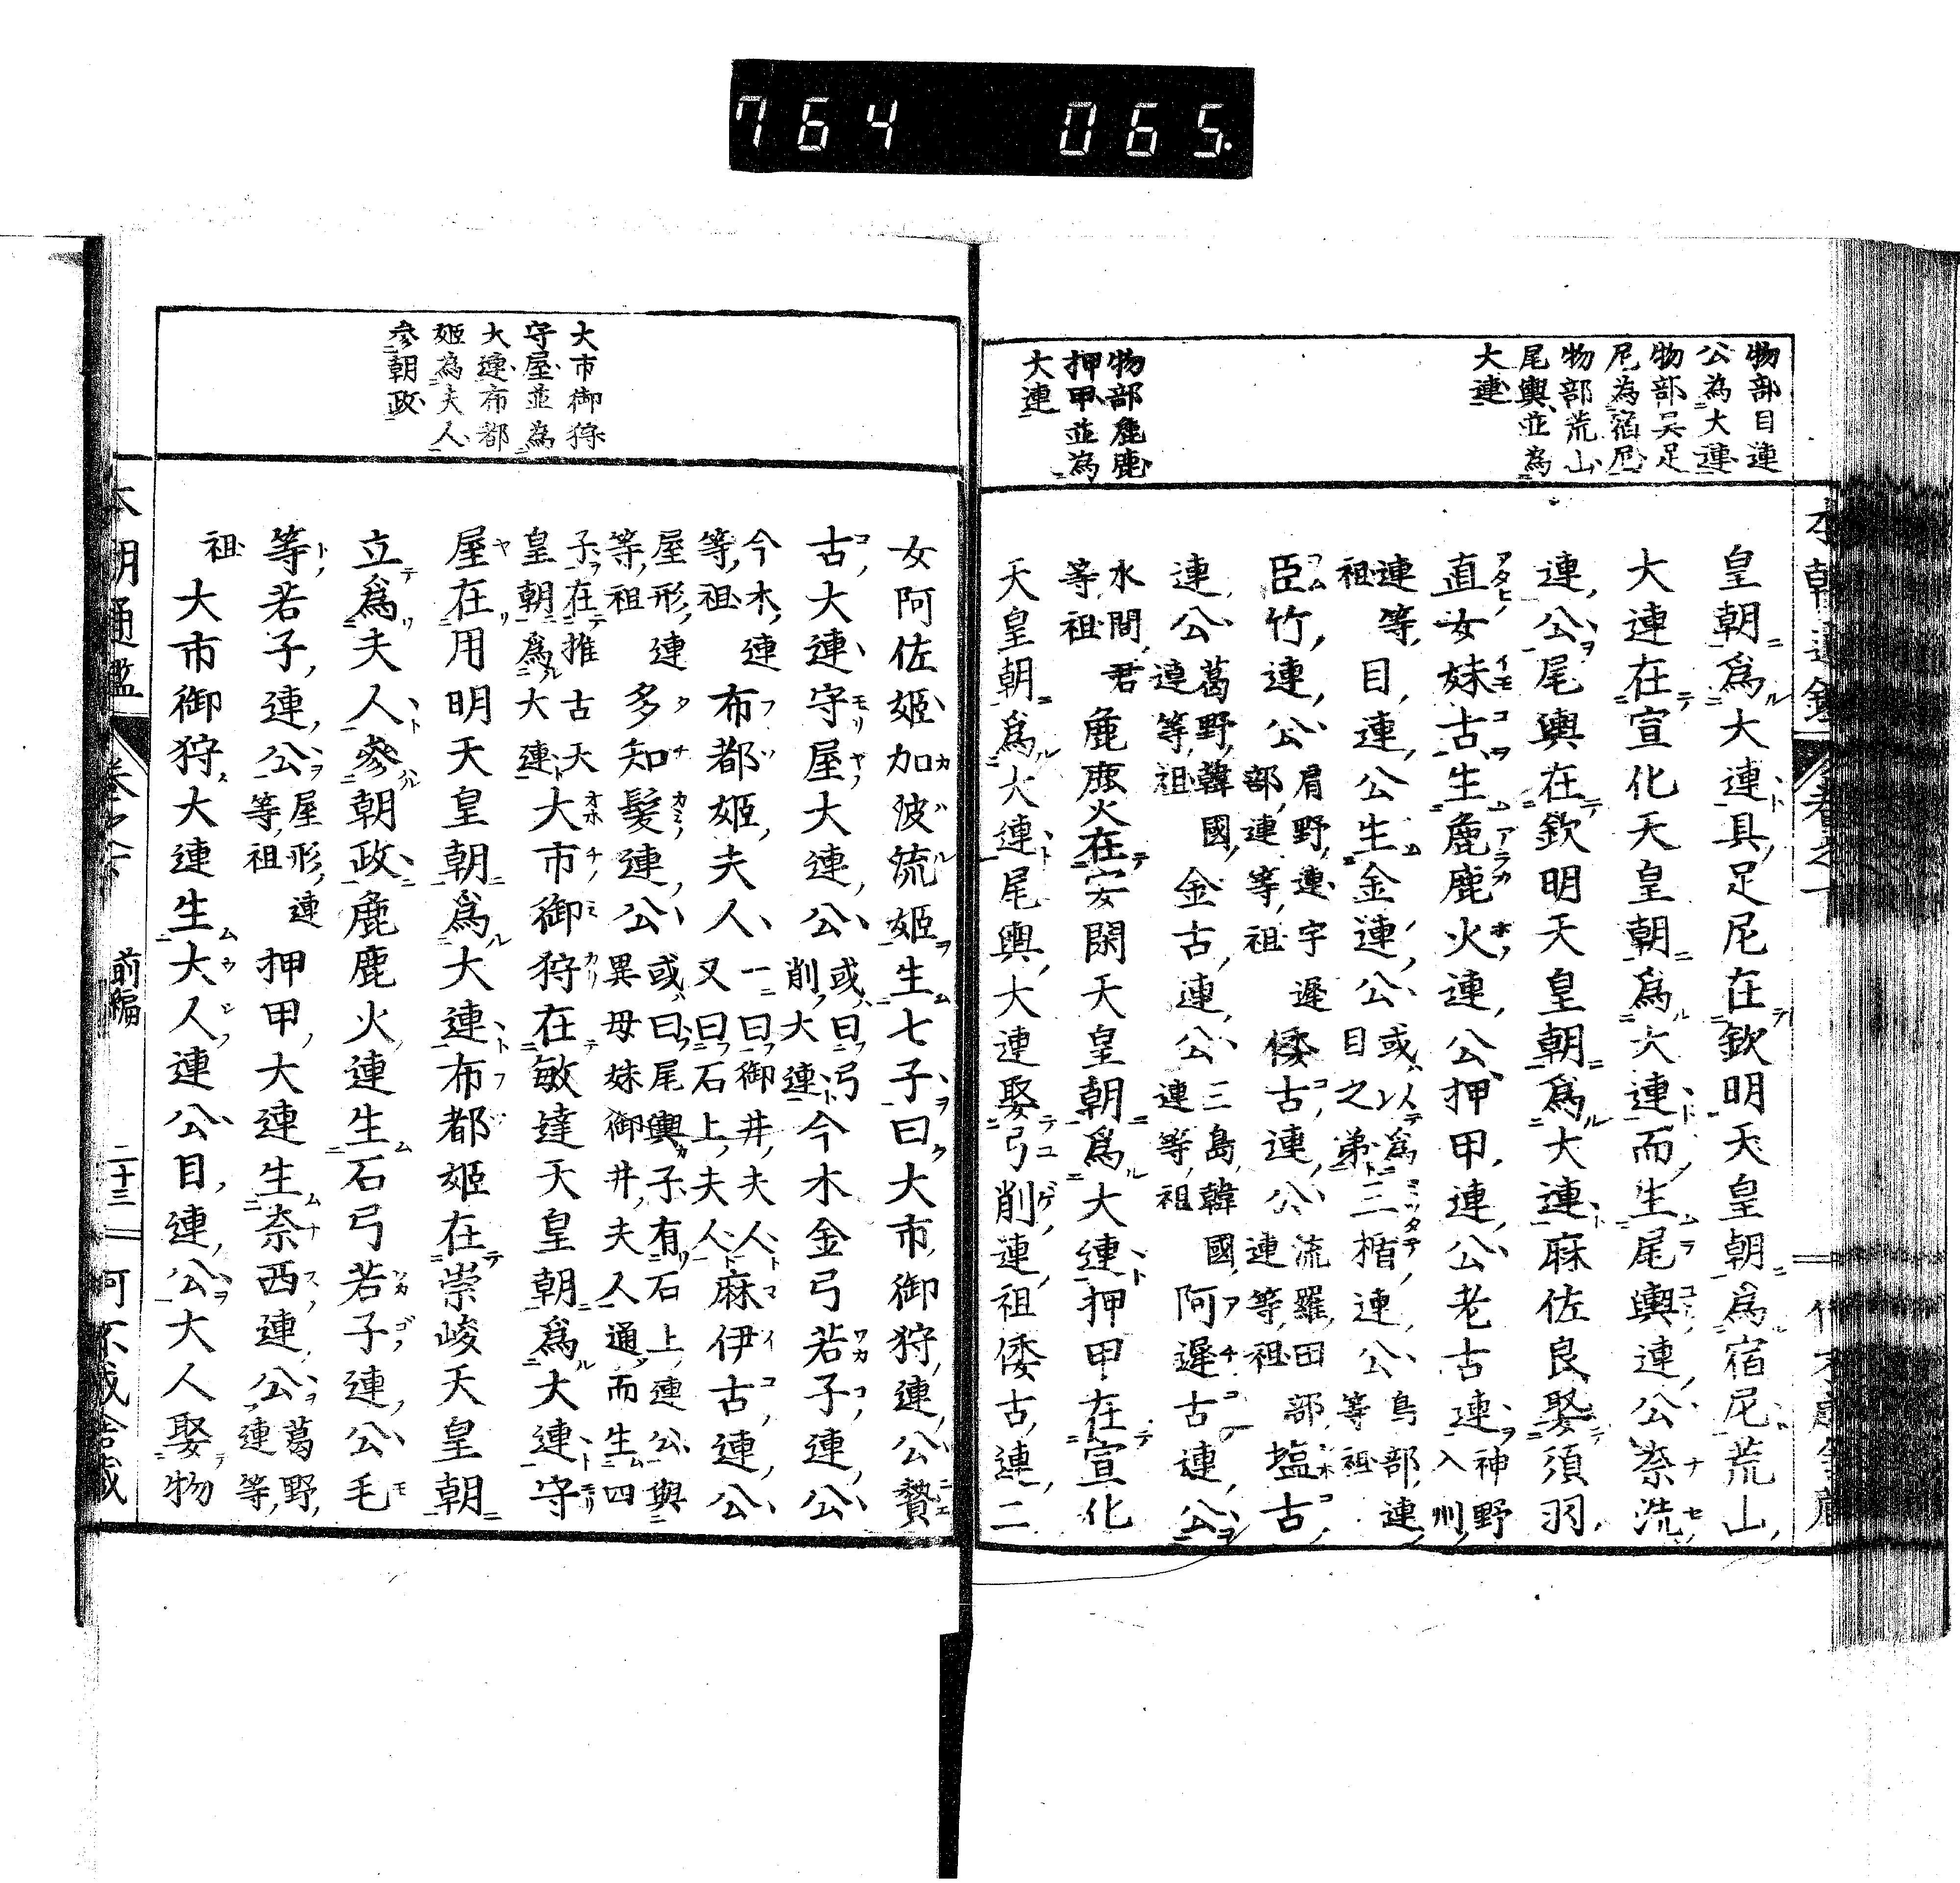 764 065.
物部目連
公為大連
物部呉足
尼為宿尼
物部荒山
尾輿並為
大連
物部麁鹿
押甲並為
大連
皇朝爲大連具足尼在欽明天皇朝爲宿尼荒山
大連在宣化天皇朝爲大連而生尾輿連公奈洗
連公尾輿在欽明天皇朝爲大連麻佐良娶須羽
直女妹古生麁鹿火連公押甲連公老古連神野入州
連等祖目連公生金連公或以爲目之弟三楯連公鳥部連等祖
臣竹連公肩野連宇遲部連等祖倭古連公流羅田部連等祖塩古
連公葛野韓國連等祖金古連公三島韓國連等祖阿遲古連公
水間君等祖麁鹿火在安閑天皇朝爲大連押甲在宣化
天皇朝爲大連尾輿大連娶弓削連祖倭古連二
大市御狩
守屋並為
大連布都
姬為夫人
參朝政
女阿佐姬加波流姬生七子曰大市御狩連公贄
古大連守屋大連公或曰弓削大連今木金弓若子連公
今木連等祖布都姬夫人一曰御井夫人又曰石上夫人麻伊古連公
屋形連等祖多知髮連公或曰尾輿子有石上連公與異母妹御井夫人通而生四
子在推古天皇朝爲大連大市御狩在敏達天皇朝爲大連守
屋在用明天皇朝爲大連布都姬在崇峻天皇朝
立爲夫人參朝政麁鹿火連生石弓若子連公毛
等若子連公屋形連等祖押甲大連生奈西連公葛野連等
祖大市御狩大連生大人連公目連公大人娶物
本朝通鑑
前編
二十三